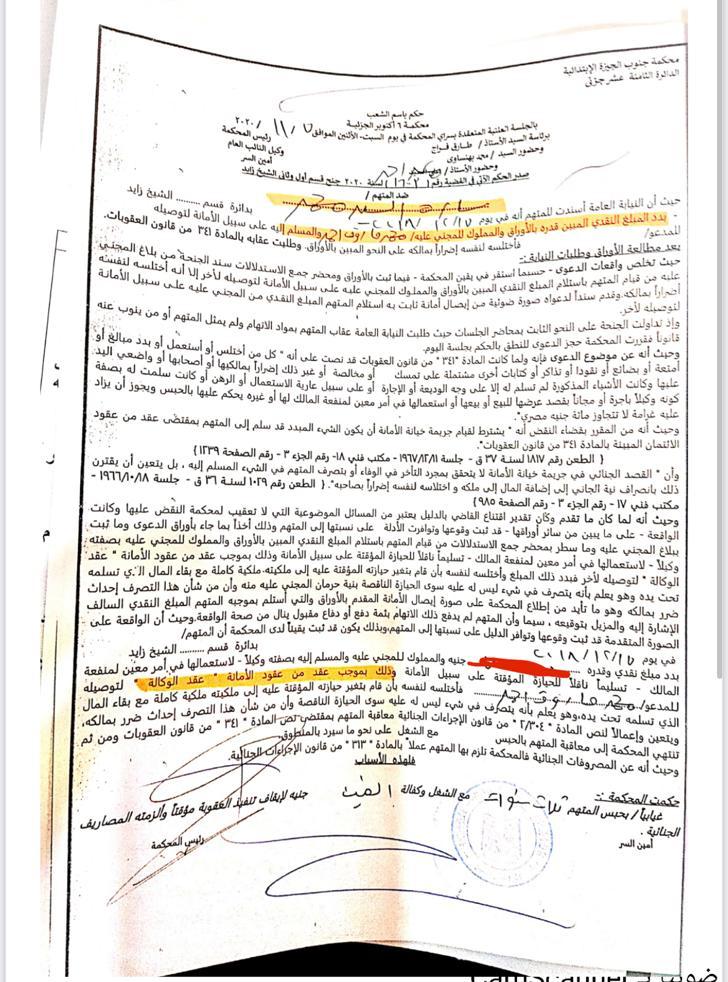 محكمة جنوب الجيزة الإبتدائية
الدائرة الثامنة عشر جزئى
حكم باسم الشعب
محكمة ٦ أكتوبر الجزئية
بالجلسة العلنية المنعقدة بسراي المحكمة في يوم السبت، الأثنين الموافق / ١١ / ٢٠٢٠
برئاسة السيد الأستاذ / طارق فراج رئيس المحكمة
وحضور السيد / محمد بهنساوى وكيل النائب العام
وحضور الأستاذ / أمين السر
صدر الحكم الآتي في القضية رقم لسنة ٢٠٢٠ جنح قسم أول وثانى الشيخ زايد
ضد المتهم /
حيث أن النيابة العامة أسندت للمتهم أنه في يوم ٢٠١٨/١٢/١٥ بدائرة قسم .......... الشيخ زايد
- بدد المبلغ النقدي المبين قدره بالأوراق والمملوك للمجني عليه/ والمسلم إليه على سبيل الأمانة لتوصيله
للمدعو/ فأختلسه لنفسه إضراراً بمالكه على النحو المبين بالأوراق، وطلبت عقابه بالمادة ٣٤١ من قانون العقوبات.
بعد مطالعة الأوراق وطلبات النيابة :-
حيث تخلص واقعات الدعوى - حسبما أستقر في يقين المحكمة - فيما ثبت بالأوراق ومحضر جمع الاستدلالات سند الجنحة من بلاغ المجني
عليه من قيام المتهم باستلام المبلغ النقدي المبين بالأوراق والمملوك للمجني عليه على سبيل الأمانة لتوصيله لأخر إلا أنه أختلسه لنفسه
أضراراً بمالكه، وقدم سنداً لدعواه صورة ضوئية من إيصال أمانة ثابت به استلام المتهم المبلغ النقدي من المجني عليه على سبيل الأمانة
لتوصيله لأخر.
وإذ تداولت الجنحة على النحو الثابت بمحاضر الجلسات حيث طلبت النيابة العامة عقاب المتهم بمواد الاتهام ولم يمثل المتهم أو من ينوب عنه
قانوناً فقررت المحكمة حجز الدعوى للنطق بالحكم بجلسة اليوم.
وحيث أنه عن موضوع الدعوى فإنه ولما كانت المادة "٣٤١" من قانون العقوبات قد نصت على أنه "كل من أختلس أو أستعمل أو بدد مبالغ أو
أمتعة أو بضائع أو نقودا أو تذاكر أو كتابات أخرى مشتملة على تمسك أو مخالصة أو غير ذلك إضراراً بمالكيها أو أصحابها أو واضعي اليد
عليها وكانت الأشياء المذكورة لم تسلم له إلا على وجه الوديعة أو الإجارة أو على سبيل عارية الاستعمال أو الرهن أو كانت سلمت له بصفة
كونه وكيلاً بأجرة أو مجاناً بقصد عرضها للبيع أو بيعها أو استعمالها في أمر معين لمنفعة المالك لها أو غيره يحكم عليه بالحبس ويجوز أن يزاد
عليه غرامة لا تتجاوز مائة جنيه مصري".
وحيث أنه من المقرر بقضاء النقض أنه " يشترط لقيام جريمة خيانة الأمانة أن يكون الشيء المبدد قد سلم إلى المتهم بمقتضى عقد من عقود
الائتمان المبينة بالمادة ٣٤١ من قانون العقوبات".
{ الطعن رقم ١٨١٧ لسنة ٣٧ ق - جلسة ١٩٦٧/١٢/١١ - مكتب فني ١٨- الجزء ٣ - رقم الصفحة ١٢٣٩ }
وأن " القصد الجنائي في جريمة خيانة الأمانة لا يتحقق بمجرد التأخر في الوفاء أو بتصرف المتهم في الشيء المسلم إليه ، بل يتعين أن يقترن
ذلك بانصراف نية الجاني إلى إضافة المال إلى ملكه و اختلاسه لنفسه إضراراً بصاحبه". { الطعن رقم ١٠٢٩ لسنة ٣٦ ق - جلسة ١٩٦٦/١٠/١٨ -
مكتب فني ١٧ - رقم الجزء ٣ - رقم الصفحة ٩٨٥ }
وحيث أنه لما كان ما تقدم وكان تقدير اقتناع القاضي بالدليل يعتبر من المسائل الموضوعية التي لا تعقيب لمحكمة النقض عليها وكانت
الواقعة - على ما يبين من سائر أوراقها - قد ثبت وقوعها وتوافرت الأدلة على نسبتها إلى المتهم وذلك أخذاً بما جاء بأوراق الدعوى وما ثبت
ببلاغ المجني عليه وما سطر بمحضر جمع الاستدلالات من قيام المتهم باستلام المبلغ النقدي المبين بالأوراق والمملوك للمجني عليه بصفته
وكيلاً - لاستعمالها في أمر معين لمنفعة المالك - تسليماً ناقلاً للحيازة المؤقتة على سبيل الأمانة وذلك بموجب عقد من عقود الأمانة " عقد
الوكالة " لتوصيله لأخر فبدد ذلك المبلغ وأختلسه لنفسه بأن قام بتغير حيازته المؤقتة عليه إلى ملكيته، ملكية كاملة مع بقاء المال الذي تسلمه
تحت يده وهو يعلم بأنه يتصرف في شيء ليس له عليه سوى الحيازة الناقصة بنية حرمان المجني عليه منه وأن من شأن هذا التصرف إحداث
ضرر بمالكه وهو ما تأيد من إطلاع المحكمة على صورة إيصال الأمانة المقدم بالأوراق والتي أستلم بموجبه المتهم المبلغ النقدي السالف
الإشارة إليه والمزيل بتوقيعه ، سيما وأن المتهم لم يدفع ذلك الاتهام بثمة دفع أو دفاع مقبول ينال من صحة الواقعة. وحيث أن الواقعة على
الصورة المتقدمة قد ثبت وقوعها وتوافر الدليل على نسبتها إلى المتهم، وبذلك يكون قد ثبت يقيناً لدى المحكمة أن المتهم/
في يوم ٢٠١٨/١٢/١٥ بدائرة قسم .......... الشيخ زايد
بدد مبلغ نقدي وقدره جنيه والمملوك للمجني عليه والمسلم إليه بصفته وكيلاً - لاستعمالها في أمر معين لمنفعة
المالك - تسليماً ناقلاً للحيازة المؤقتة على سبيل الأمانة وذلك بموجب عقد من عقود الأمانة " عقد الوكالة " لتوصيله
للمدعو/ فأختلسه لنفسه بأن قام بتغير حيازته المؤقتة عليه إلى ملكيته ملكية كاملة مع بقاء المال
الذي تسلمه تحت يده، وهو يعلم بأنه يتصرف في شيء ليس له عليه سوى الحيازة الناقصة وأن من شأن هذا التصرف إحداث ضرر بمالكه،
ويتعين وإعمالاً لنص المادة "٢/٣٠٤" من قانون الإجراءات الجنائية معاقبة المتهم بمقتضى نص المادة " ٣٤١ " من قانون العقوبات ومن ثم
تنتهي المحكمة إلى معاقبة المتهم بالحبس مع الشغل على نحو ما سيرد بالمنطوق.
وحيث أنه عن المصروفات الجنائية فالمحكمة تلزم بها المتهم عملاً بالمادة "٣١٣" من قانون الإجراءات الجنائية.
فلهذه الأسباب
حكمت المحكمة :-
غيابياً / بحبس المتهم ثلاث سنوات مع الشغل وكفالة جنيه لإيقاف تنفيذ العقوبة مؤقتاً وألزمته المصاريف
الجنائية .
أمين السر رئيس المحكمة